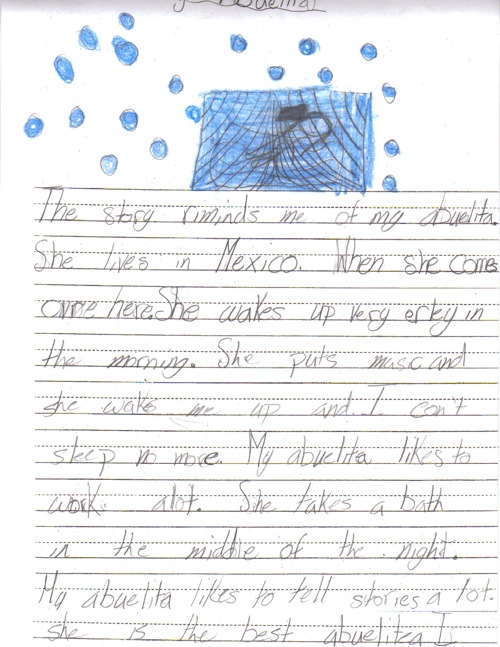 The story riminds me of my abuelita.
She lives in Mexico. When she comes
ovre here. She wakes up very erly in
the morning. She puts music and
she wakes me up and I con't
sleep no more. My abuelita likes to
work alot. She takes a bath
in the middle of the night.
My abuelita likes to tell stories a lot.
she is the best abuelitea I